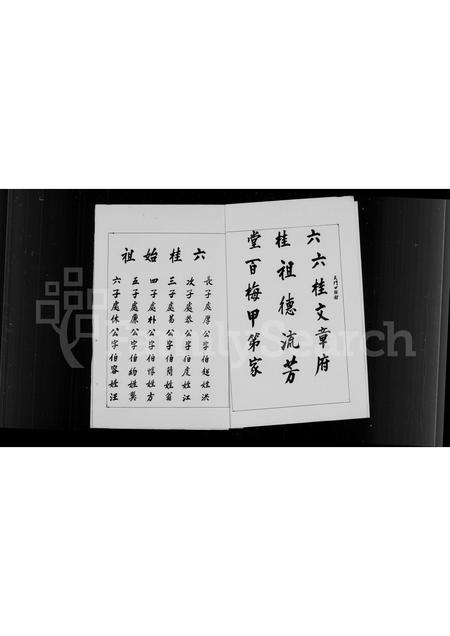 六桂堂
六桂文章府
祖德流芳
百梅甲第家
六桂始祖
長子處厚公字伯起姓洪
次子處恭公字伯虔姓江
三子處易公字伯簡姓翁
四子處朴公字伯惇姓方
五子處廉公字伯約姓龔
六子處休公字伯容姓汪
FamilySearch